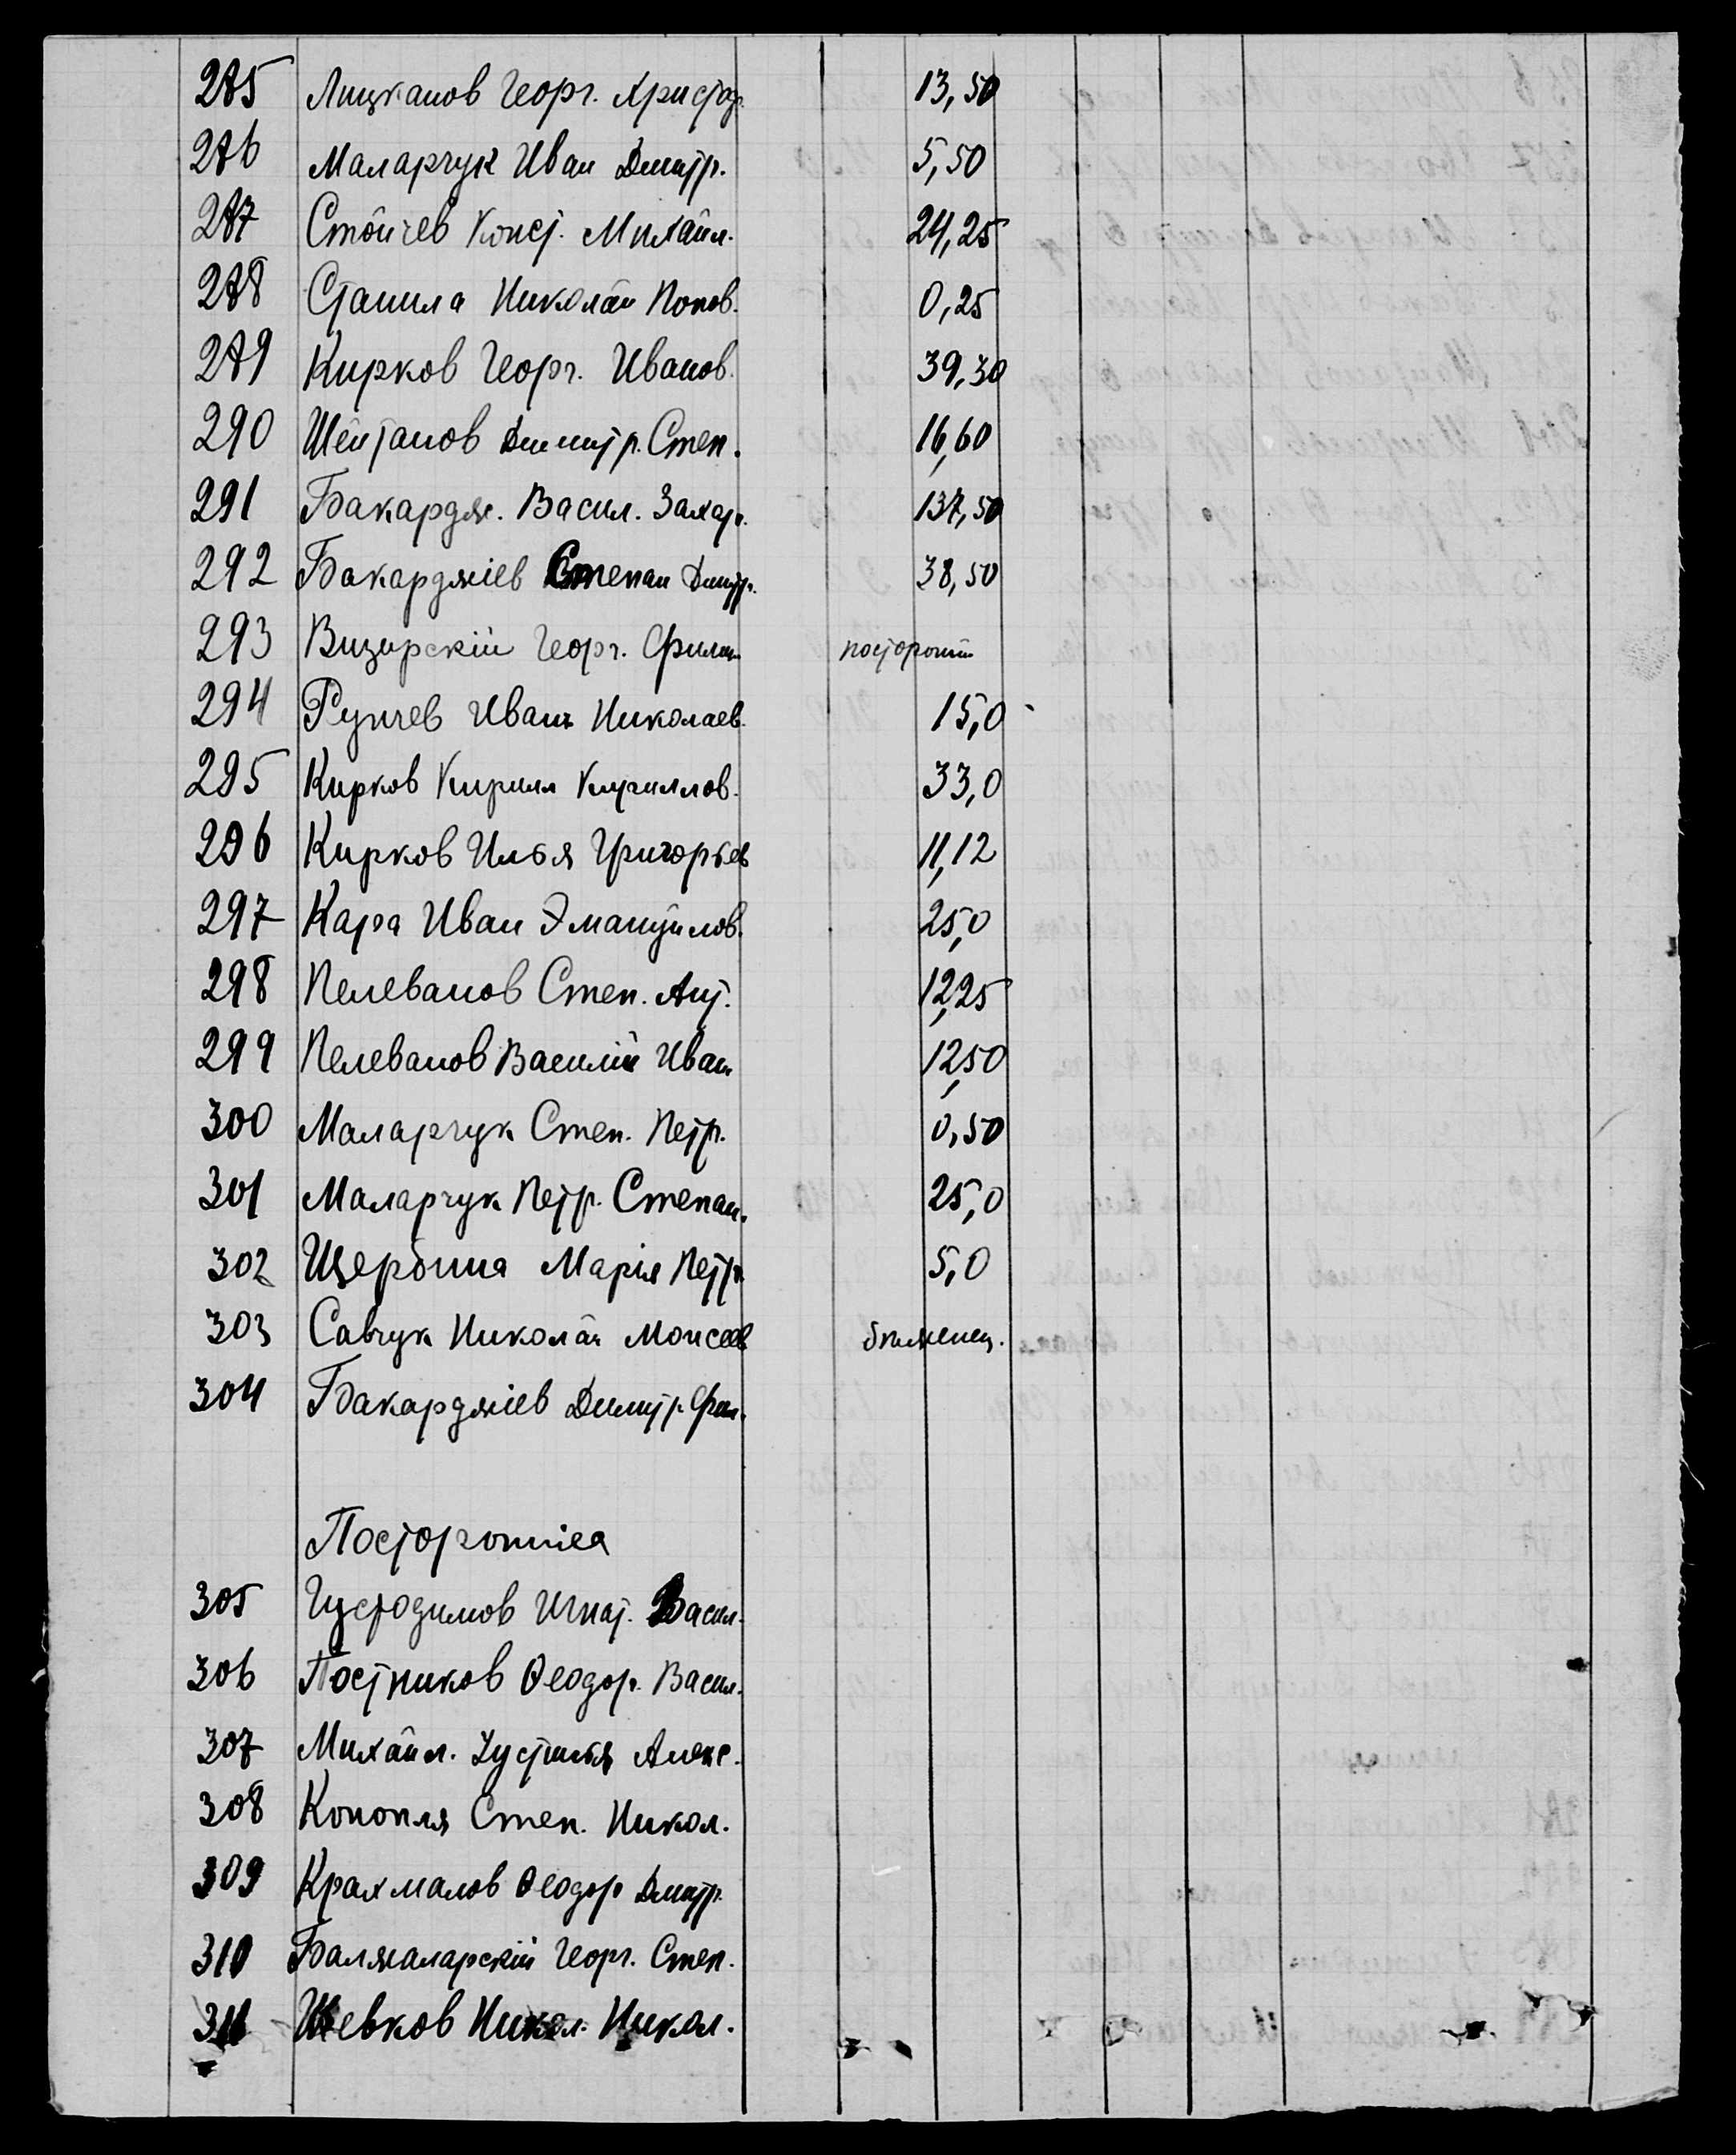 285 Лицканов Георг. Христоф. 13,50
286 Маларчук Иван Димитр. 5,50
287 Стойчев Конст. Михайл. 24,25
288 Станила Николай Попов. 0,25
289 Кирков Георг. Иванов. 39,30
290 Шейтанов Димитр. Степ. 16,60
291 Бакардж. Васил. Захар. 137,50
292 Бакарджіев Степан Димтр. 38,50
293 Визирскій Георг. Филип. посторонній
294 Рупчев Иванъ Николаев. 15,0
295 Кирков Кирилл Кириллов. 33,0
296 Кирков Илья Григорьев 11,12
297 Кара Иван Эмануйлов. 25,0
298 Пелеванов Степ. Ант. 12,25
299 Пелеванов Василій Иван 12,50
300 Маларчук Степ. Петр. 0,50
301 Маларчук Петр. Степан. 25,0
302 Щербина Марія Петр. 5,0
303 Савчук Николай Моисеев беженец.
304 Бакарджіев Димитр. Фил.
Посторонніея
305 Игнат. Васил.
306 Постников Ѳеодор. Васил.
307 Михайл. Устинья Алекс.
308 Конопля Степ. Никол.
309 Крахмалов Ѳеодор Дмитр.
310 Балжаларскій Георг. Степ.
311 Шевков Никол. Никол.